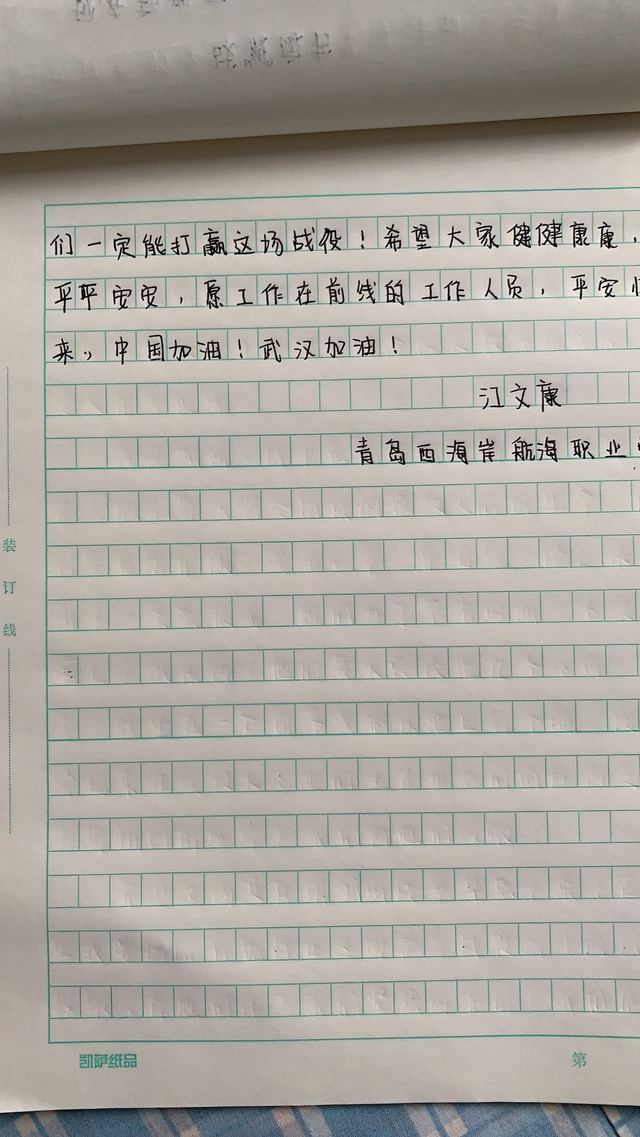 们一定能打赢这场战役！希望大家健健康康，
平平安安，愿工作在前线的工作人员，平安
来，中国加油！武汉加油！
江文康
青岛西海岸航海职业
装订线
凯萨纸品
第